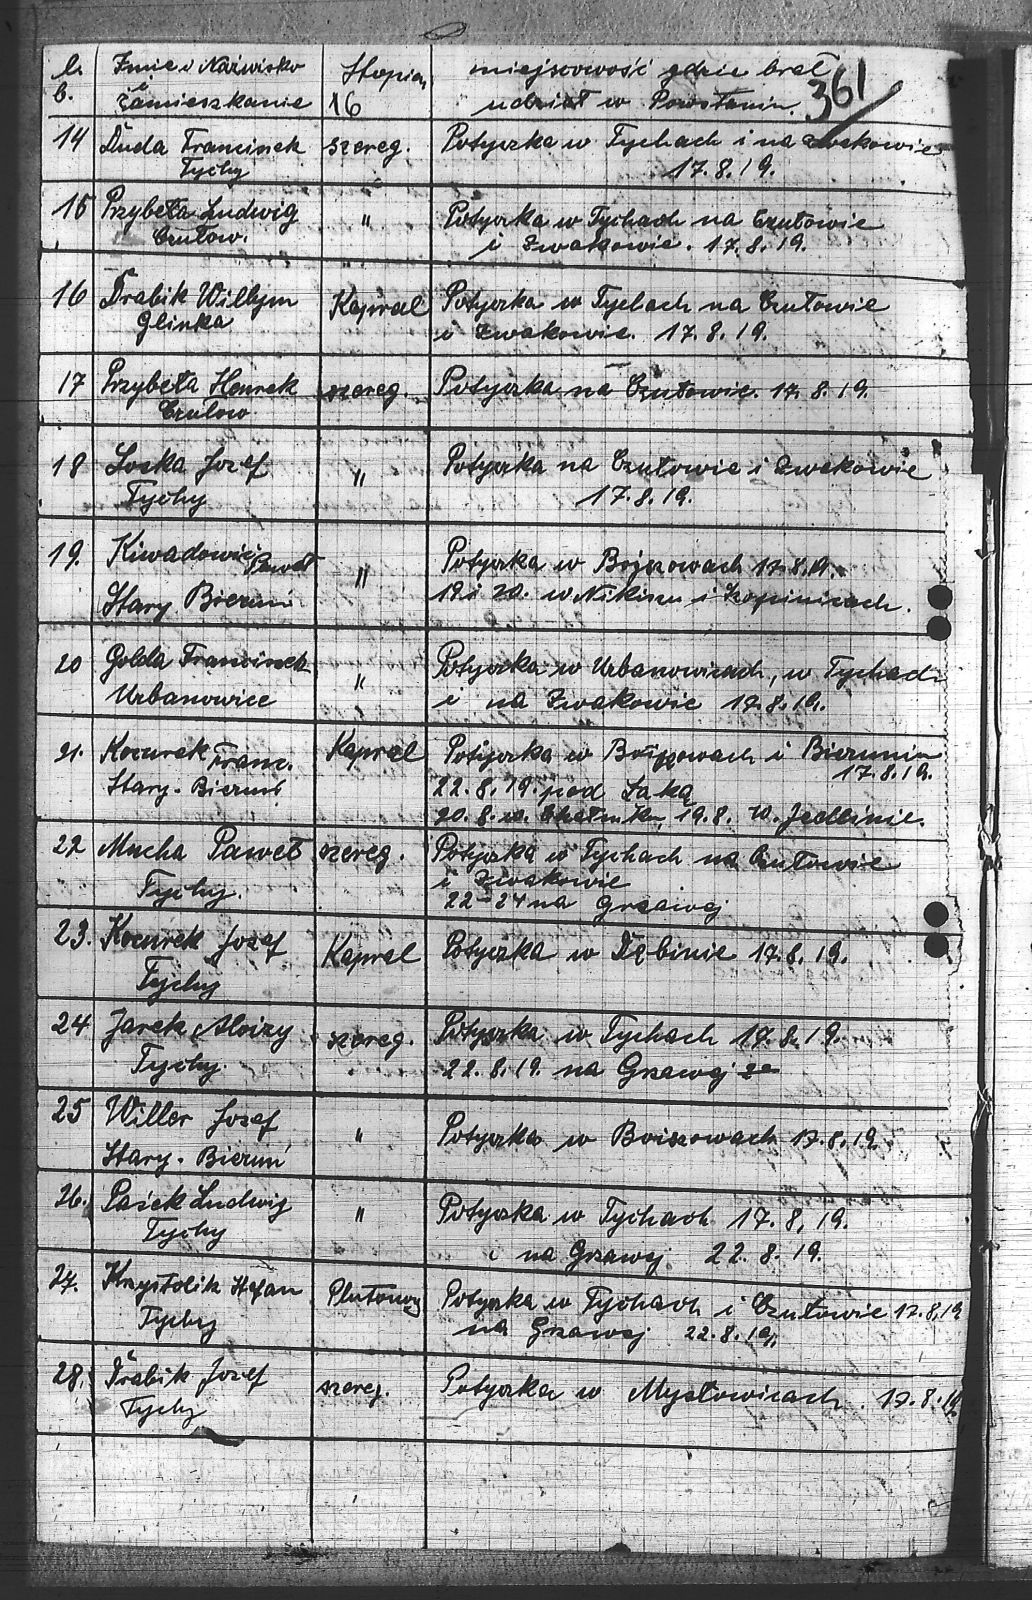 L. Imię i Nazwisko Stopień miejscowość gdzie brał 361
b. i Zamieszkanie 16 udział w Powstaniu.
14 Duda Francisek szereg. Potyczka w Tychach i na Zwakowie
Tychy 17.8.19.
15 Przybeła Ludwig " Potyczka w Tychach na Czułowie
Czułow. i Zwakowie. 17.8.19.
16 Drabik Wilhym Kapral Potyczka w Tychach na Czułowie
Glinka i Zwakowie. 17.8.19.
17 Przybeła Henrek szereg. Potyczka na Czułowie. 17.8.19.
Czulow
18 Loska Jozef " Potyczka na Czułowie i Zwakowie
Tychy 17.8.19.
19. Kiwadowic Paweł " Potyczka w Bojszowach 17.8.19.
Stary Bieruń 19 i 20. w Nikiszu i
20 Golda Francisek " Potyczka w Urbanowicach, w Tychach
Urbanowice i na Zwakowie 17.8.19.
21. Kocurek Franc. Kapral Potyczka w Bojszowach i Bieruniu
17.8.19.
Stary-Bieruń 22.8.19. pod Laką
20.8. w. 19.8. w. Jedlinie.
22 Mucha Paweł szereg. Potyczka w Tychach na Czułowie
i Zwakowie
Tychy. 22-24 na Grzawej
23. Kocurek Jozef Kapral Potyczka w Dębinie 17.8.19.
Tychy
24 Jarek Aloizy szereg. Potyczka w Tychach 17.8.19.
Tychy. 22.8.19. na Grzawej
25 Willer Jozef " Potyczka w Boiszowach 17.8.19.
Stary-Bieruń
26. Pasek Ludwig " Potyczka w Tychach 17.8.19.
Tychy i na Grzawej 22.8.19.
27. Krystolik Stefan Plutonowy Potyczka w Tychach i Czułowie 17.8.19
Tychy na Grzawej 22.8.19.
28. Drabik Jozef szereg. Potyczka w Mysłowicach. 17.8.19.
Tychy